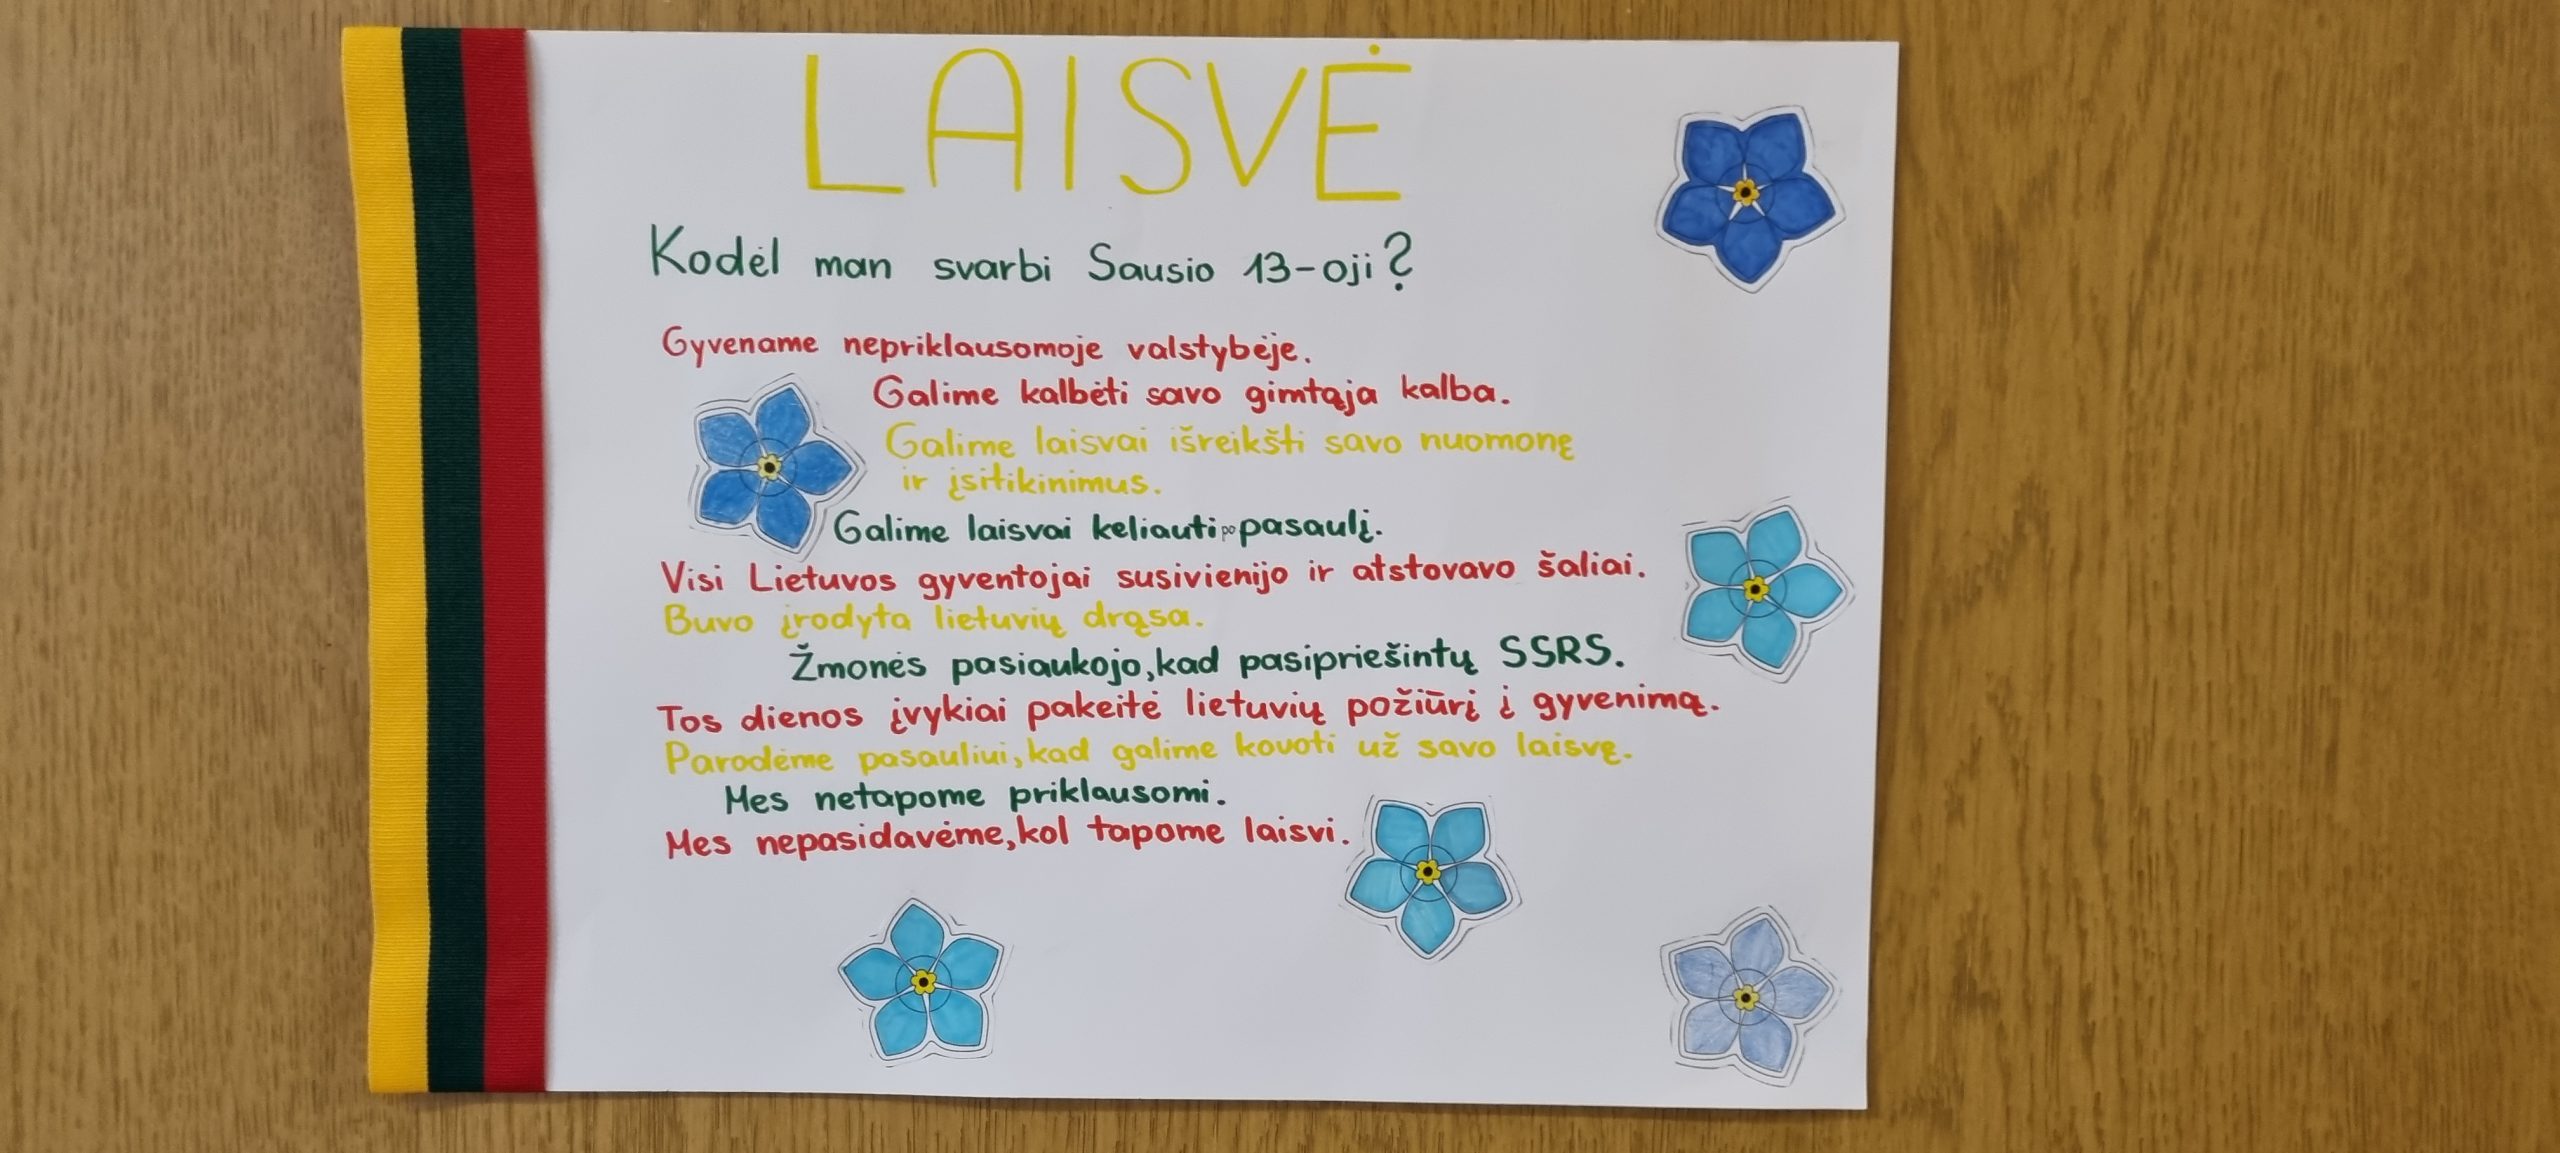 LAISVĖ
Kodėl man svarbi Sausio 13-oji?
Gyvename nepriklausomoje valstybėje.
Galime kalbėti savo gimtąja kalba.
Galime laisvai išreikšti savo nuomonę
ir įsitikinimus.
Galime laisvai keliauti po pasaulį.
Visi Lietuvos gyventojai susivienijo ir atstovavo šaliai.
Buvo įrodyta lietuvių drąsa.
Žmonės pasiaukojo, kad pasipriešintų SSRS.
Tos dienos įvykiai pakeitė lietuvių požiūrį į gyvenimą.
Parodėme pasauliui, kad galime kovoti už savo laisvę.
Mes netapome priklausomi.
Mes nepasidavėme, kol tapome laisvi.